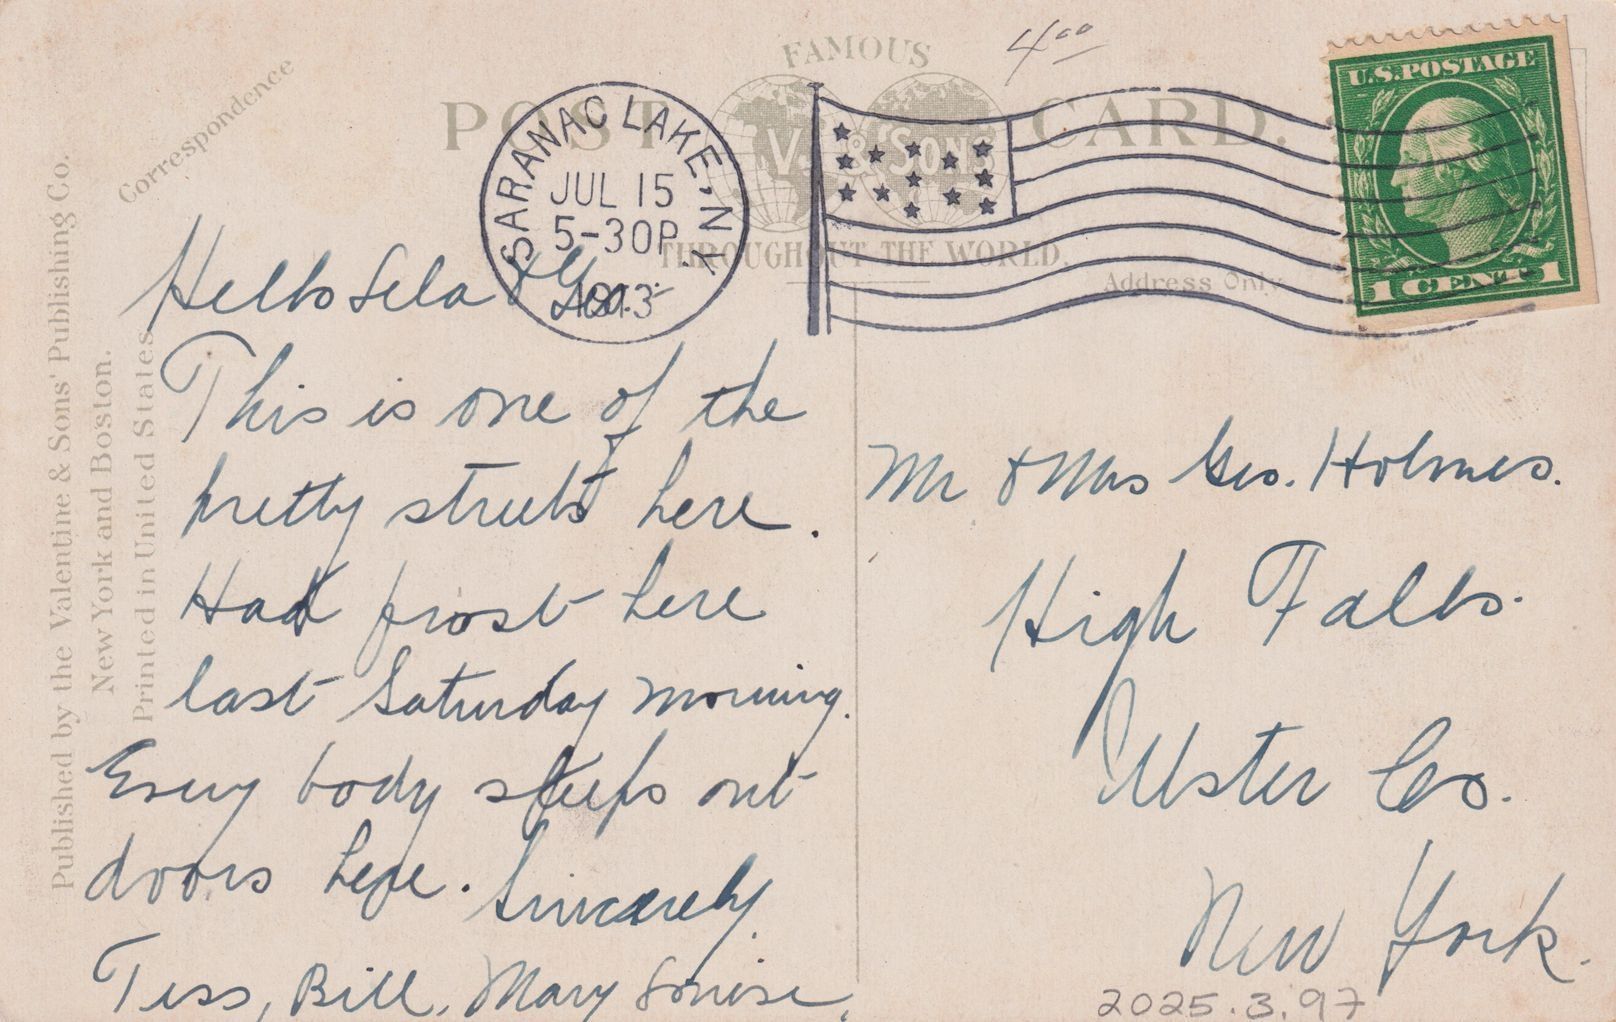 4.00
FAMOUS
POST CARD.
V. & SONS
THROUGHOUT THE WORLD.
Correspondence
Address Only
SARANAC LAKE, N.Y.
JUL 15
5-30P
1913
U.S. POSTAGE
1 CENT 1
Published by the Valentine & Sons' Publishing Co.
New York and Boston.
Printed in United States
Hello Lela & Geo.
This is one of the
pretty streets here.
Had frost here
last Saturday morning.
Every body sleeps out
doors here. Sincerely
Tess, Bill, Mary Louise,
Mr & Mrs Geo. Holmes.
High Falls.
Ulster Co.
New York.
2025.3.97